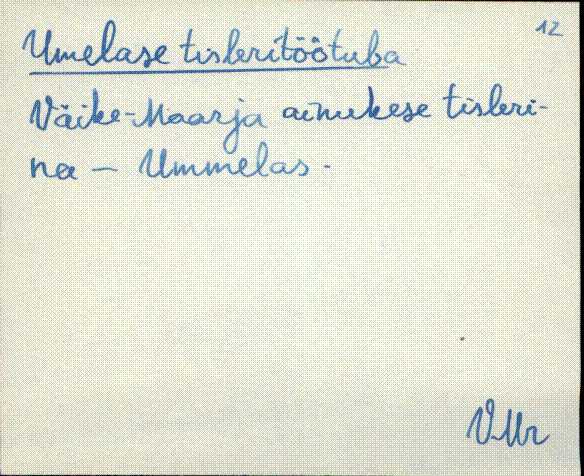 12
Umelase tisleritöötuba
Väike-Maarja ainukese tisleri-
na - Ummelas.
V.Mr